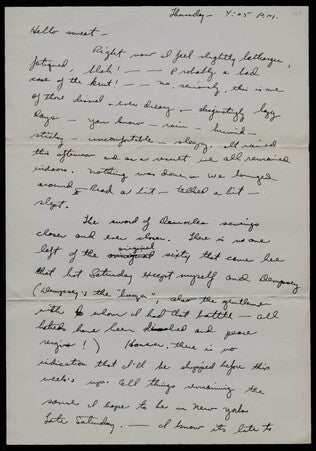 Thursday - 4:05 P.M.
Hello sweet -
Right now I feel slightly lethargic,
fatigued, blah! - - Probably a bad
case of the - - no, seriously, this is one
of those dismal - ever dreary - disgustingly lazy
days - you know - rain - humid -
sticky - uncomfortable - sleepy. It rained
this afternoon and as a result we all remained
indoors. Nothing was done & we lounged
around & read a bit - talked a bit -
slept.
The sword of Damocles swings
closer and ever closer. There is no one
left of the original sixty that came here
that hot Saturday except myself and Dempsey
(Dempsey's the "booger", also the gentleman
with whom I had that battle - all
hatreds have been dissolved and peace
reigns!) However, there is no
indication that I'll be shipped before this
week's up. All things remaining the
same I hope to be in New York
late Saturday. - I know its late to